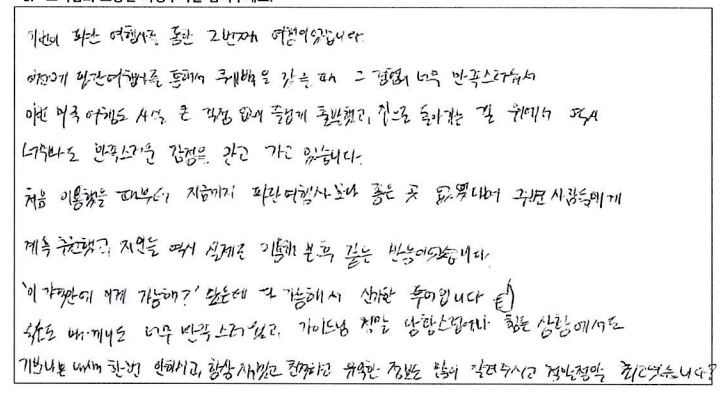 이번이 파란 여행사를 통한 2번째 여행이었습니다.
이전에 파란여행사를 통해서 퀘벡을 갔을 때 그 경험이 너무 만족스러워서
이번 미국 여행도 사실 큰 걱정 없이 즐겁게 출발했고, 집으로 돌아가는 길 위에서 역시
너무나도 만족스러운 감정을 갖고 가고 있습니다.
처음 이용했을 때부터 지금까지 파란여행사보다 좋은 곳 없다며 주변 사람들에게
계속 추천했고, 지인들 역시 실제로 이용해 본 후 같은 반응이었습니다.
'이 가격안에 이게 가능해?' 싶은데 다 가능해서 신기한 투어입니다
숙소도 매 끼니도 너무 만족스러웠고, 가이드님 정말 당황스럽거나 힘든 상황에서도
기분나쁜 내색 한번 안하시고, 항상 재밌고 친절하고 유익한 정보도 많이 알려주시고 정말정말 최고였습니다!